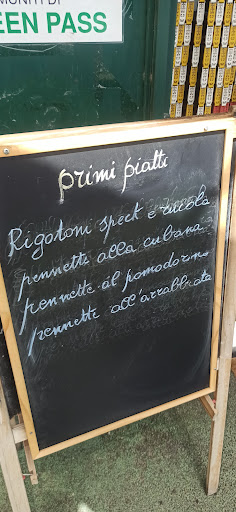 MUNITI DI
EEN PASS
primi piatti
Rigatoni speck e rucola
pennette alla cubana
pennette al pomodoro
pennette all'arrabbiata